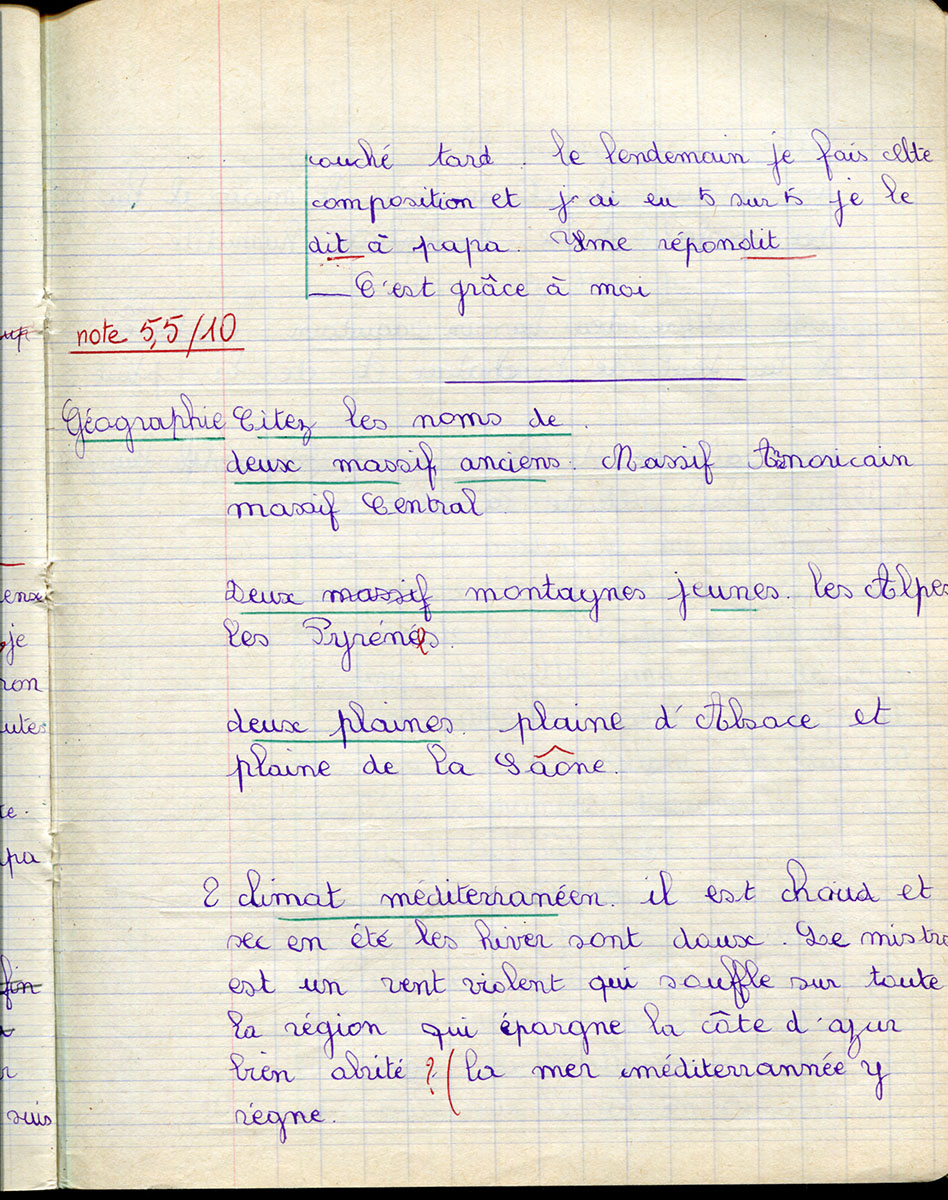 couché tard. le lendemain je fais cette
composition et j'ai eu 5 sur 5 je le
dit à papa. Il me répondit
— C'est grâce à moi
note 5,5/10
Géographie Citez les noms de
deux massif anciens. Massif Armoricain
massif Central
Deux massif montagnes jeunes. les Alpes
les Pyrénées.
deux plaines. plaine d'Alsace et
plaine de la Saône.
2 climat méditerranéen. il est chaud et
sec en été les hiver sont doux. Le mistra
est un vent violent qui souffle sur toute
la région qui épargne la côte d'azur
bien abrité ? ( la mer méditerrannée y
règne.
ens
je
ron
utes
te.
pa
fin
r
suis